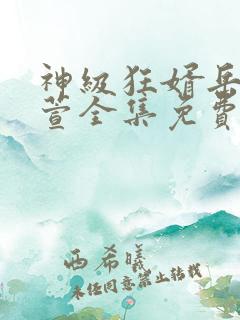 神级狂婿岳
萱全集免费
西希曦
未经同意禁止转载